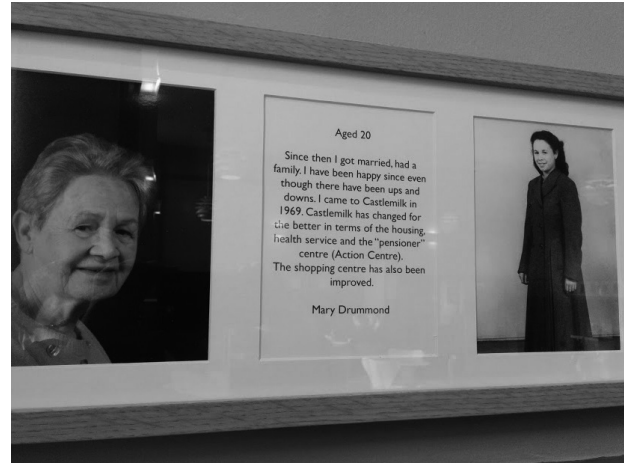 Aged 20
Since then I got married, had a
family. I have been happy since even
though there have been ups and
downs. I came to Castlemilk in
1969. Castlemilk has changed for
the better in terms of the housing,
health service and the "pensioner"
centre (Action Centre).
The shopping centre has also been
improved.
Mary Drummond